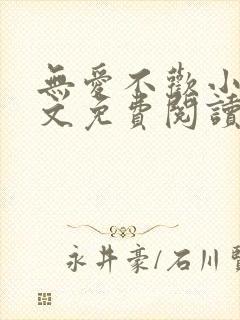 無愛不歡小
文免費閱讀
永井豪/石川賢